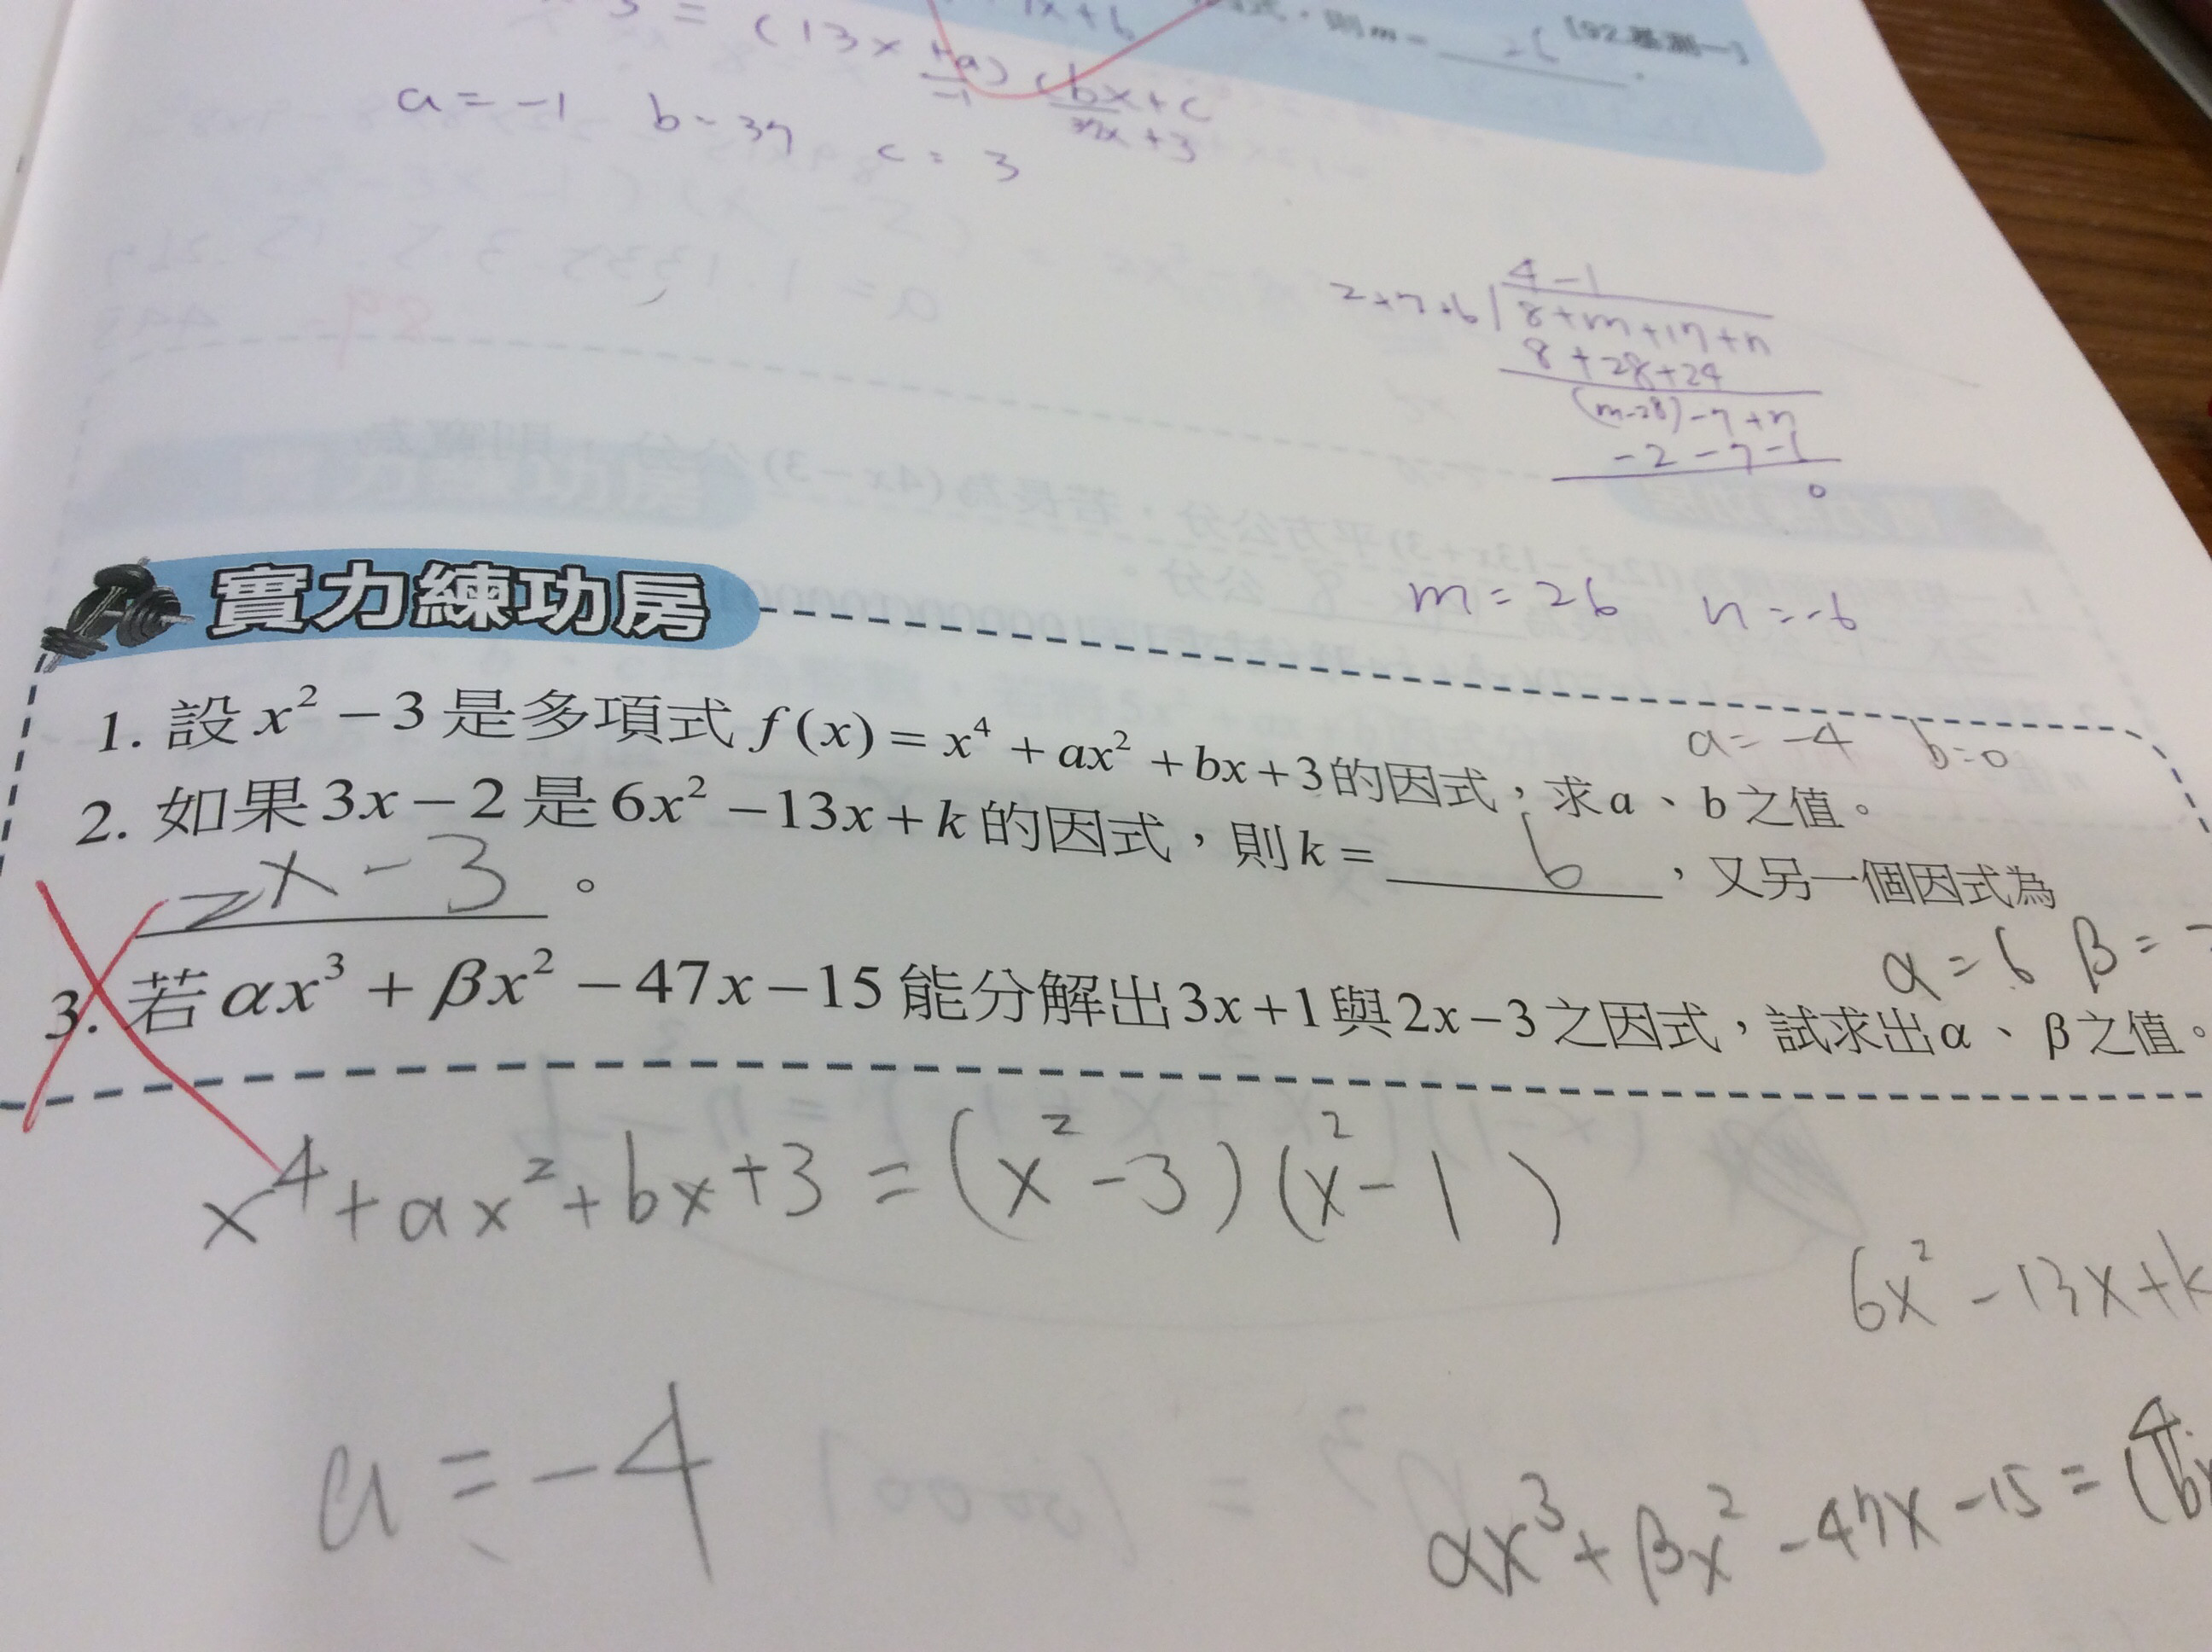 = (13x +a) (bx+c
-1 37x+3
則m= 26 [92基測一]
a=-1 b=37 c=3
4-1
2+7+6 8+m+17+n
8+28+24
(m-28)-7+n
-2-7-6
0
m=26 n=-6
實力練功房
a=-4 b=0
1. 設x²-3是多項式f(x)=x⁴+ax²+bx+3的因式，求a、b之值。
2. 如果3x-2是6x²-13x+k的因式，則k= 6 ，又另一個因式為
2x-3 。
α=6 β=
3. 若αx³+βx²-47x-15能分解出3x+1與2x-3之因式，試求出α、β之值。
x⁴+ax²+bx+3=(x²-3)(x²-1)
6x²-13x+k
a=-4
αx³+βx²-47x-15=(